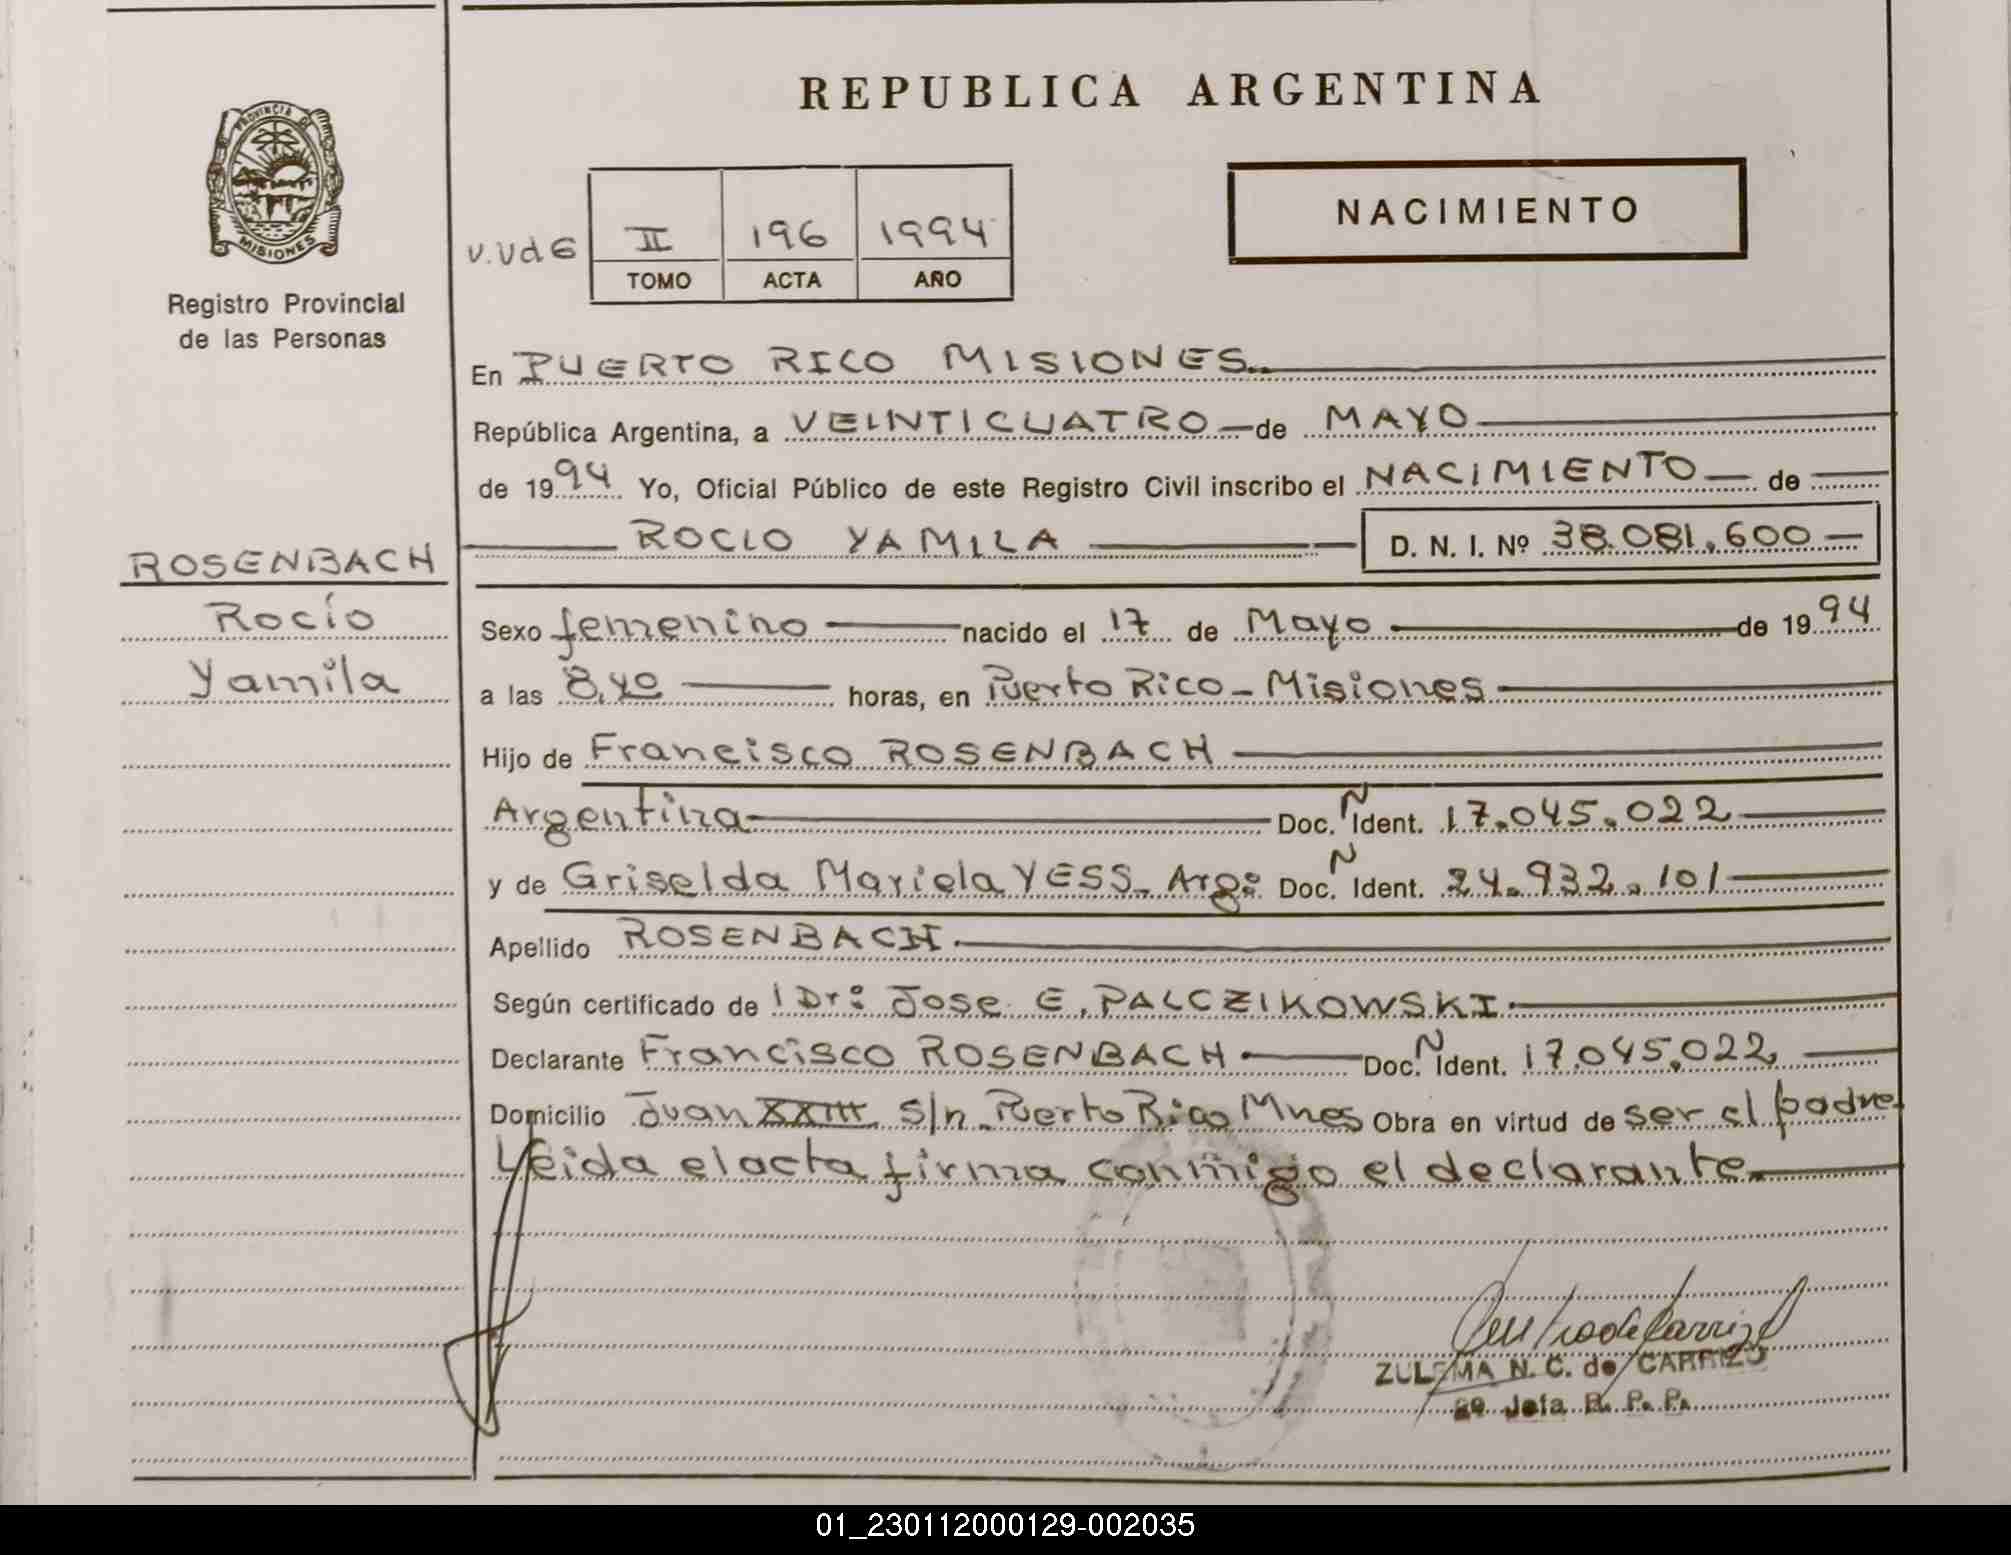 REPUBLICA ARGENTINA
PROVINCIA DE
MISIONES
Registro Provincial
de las Personas
NACIMIENTO
V.Vd6 II 196 1994
TOMO ACTA AÑO
En PUERTO RICO MISIONES
República Argentina, a VEINTICUATRO de MAYO
de 1994 Yo, Oficial Público de este Registro Civil inscribo el NACIMIENTO de
ROCIO YAMILA D. N. I. Nº 38.081.600
ROSENBACH
Rocío
Yamila
Sexo femenino nacido el 17 de Mayo de 1994
a las 8,40 horas, en Puerto Rico - Misiones
Hijo de Francisco ROSENBACH
Argentina Doc. N Ident. 17.045.022
y de Griselda Mariela YESS. Arg: Doc. N Ident. 24.932.101
Apellido ROSENBACH
Según certificado de l Dr: Jose E. PALCZIKOWSKI
Declarante Francisco ROSENBACH Doc. N Ident. 17.045.022
Domicilio Juan XXIII S/n. Puerto Rico Mnes Obra en virtud de ser el padre
Leida el acta firma conmigo el declarante
ZULEMA N. C. de CARRIZO
Jefa R. P. P.
01_230112000129-002035